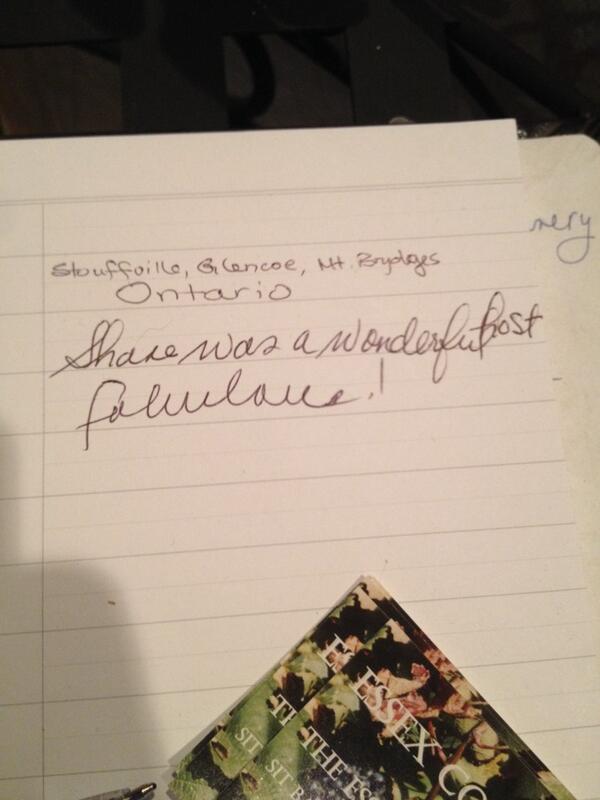 nery
Stouffville, Glencoe, Mt. Brydges
Ontario
Shane was a wonderful host
fabulous!
ESSEX CO
THE ES
SIT B
E
TH
SIT